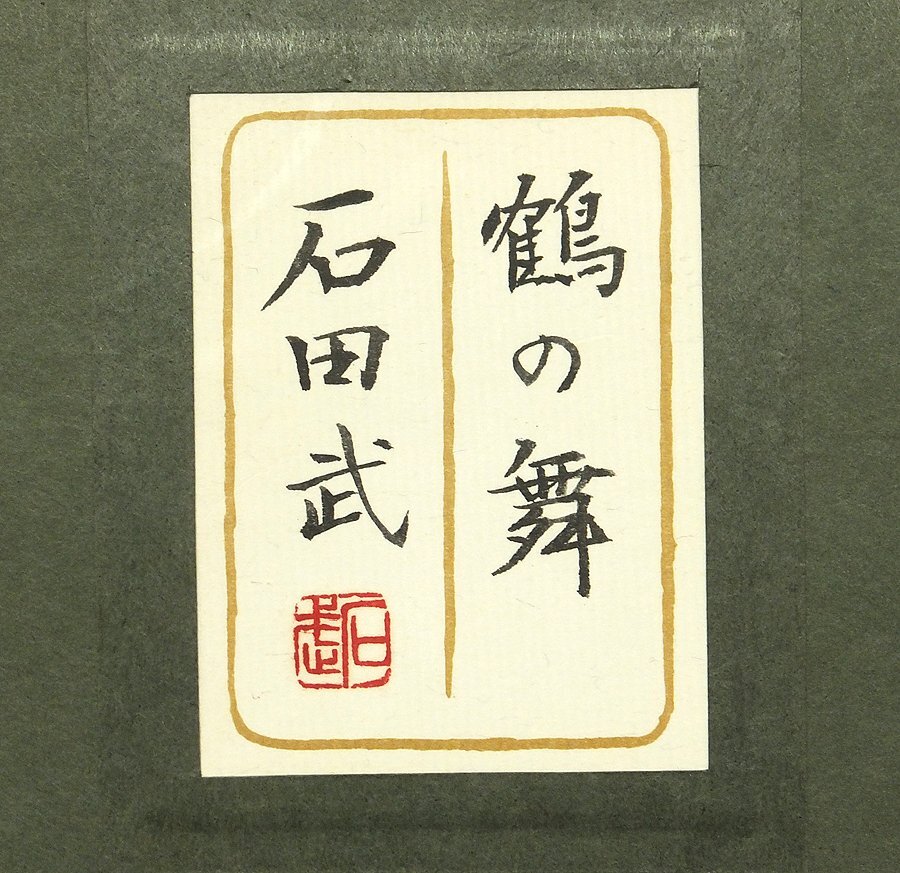 鶴の舞
石田武